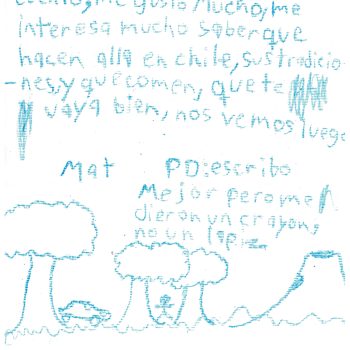 me gustó mucho, me
interesa mucho saber que
hacen alla en chile, sus tradicio
-nes, y que comen, que te
vaya bien, nos vemos luego
Mat PD: escribo
Mejor pero me
dieron un crayon,
no un lapiz